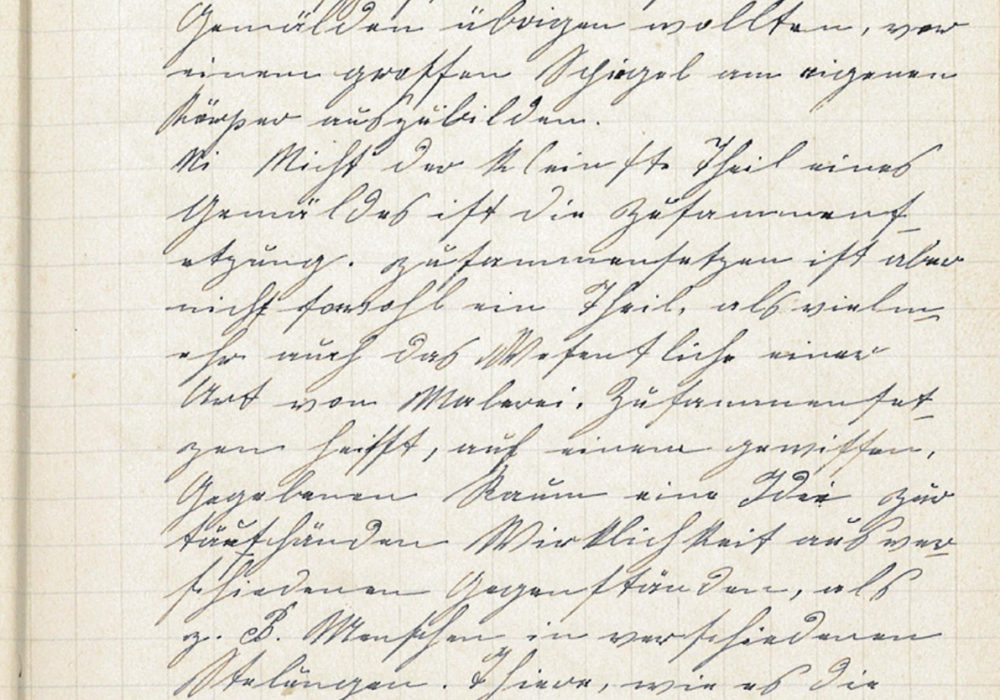 Gemälden übrigen wollten, vor
einem grossen Schpiegel am eigenen
Körper auszubilden.
Ni Nicht der kleinste Theil eines
Gemäldes ist die Zusammens
etzung. zusammensetzen ist aber
nicht sowohl ein Theil, als vielm
ehr auch das Wesentliche einer
Art von Malerei. Zusammenset
zen heisst, auf einem gewissen,
Gegebenen Raum eine Idee zur
täuschänden Wirklichkeit aus ver
schiedenen Gegenständen, als
z. B. Menschen in verschiedenen
Stelungen. Thiere, wie es die